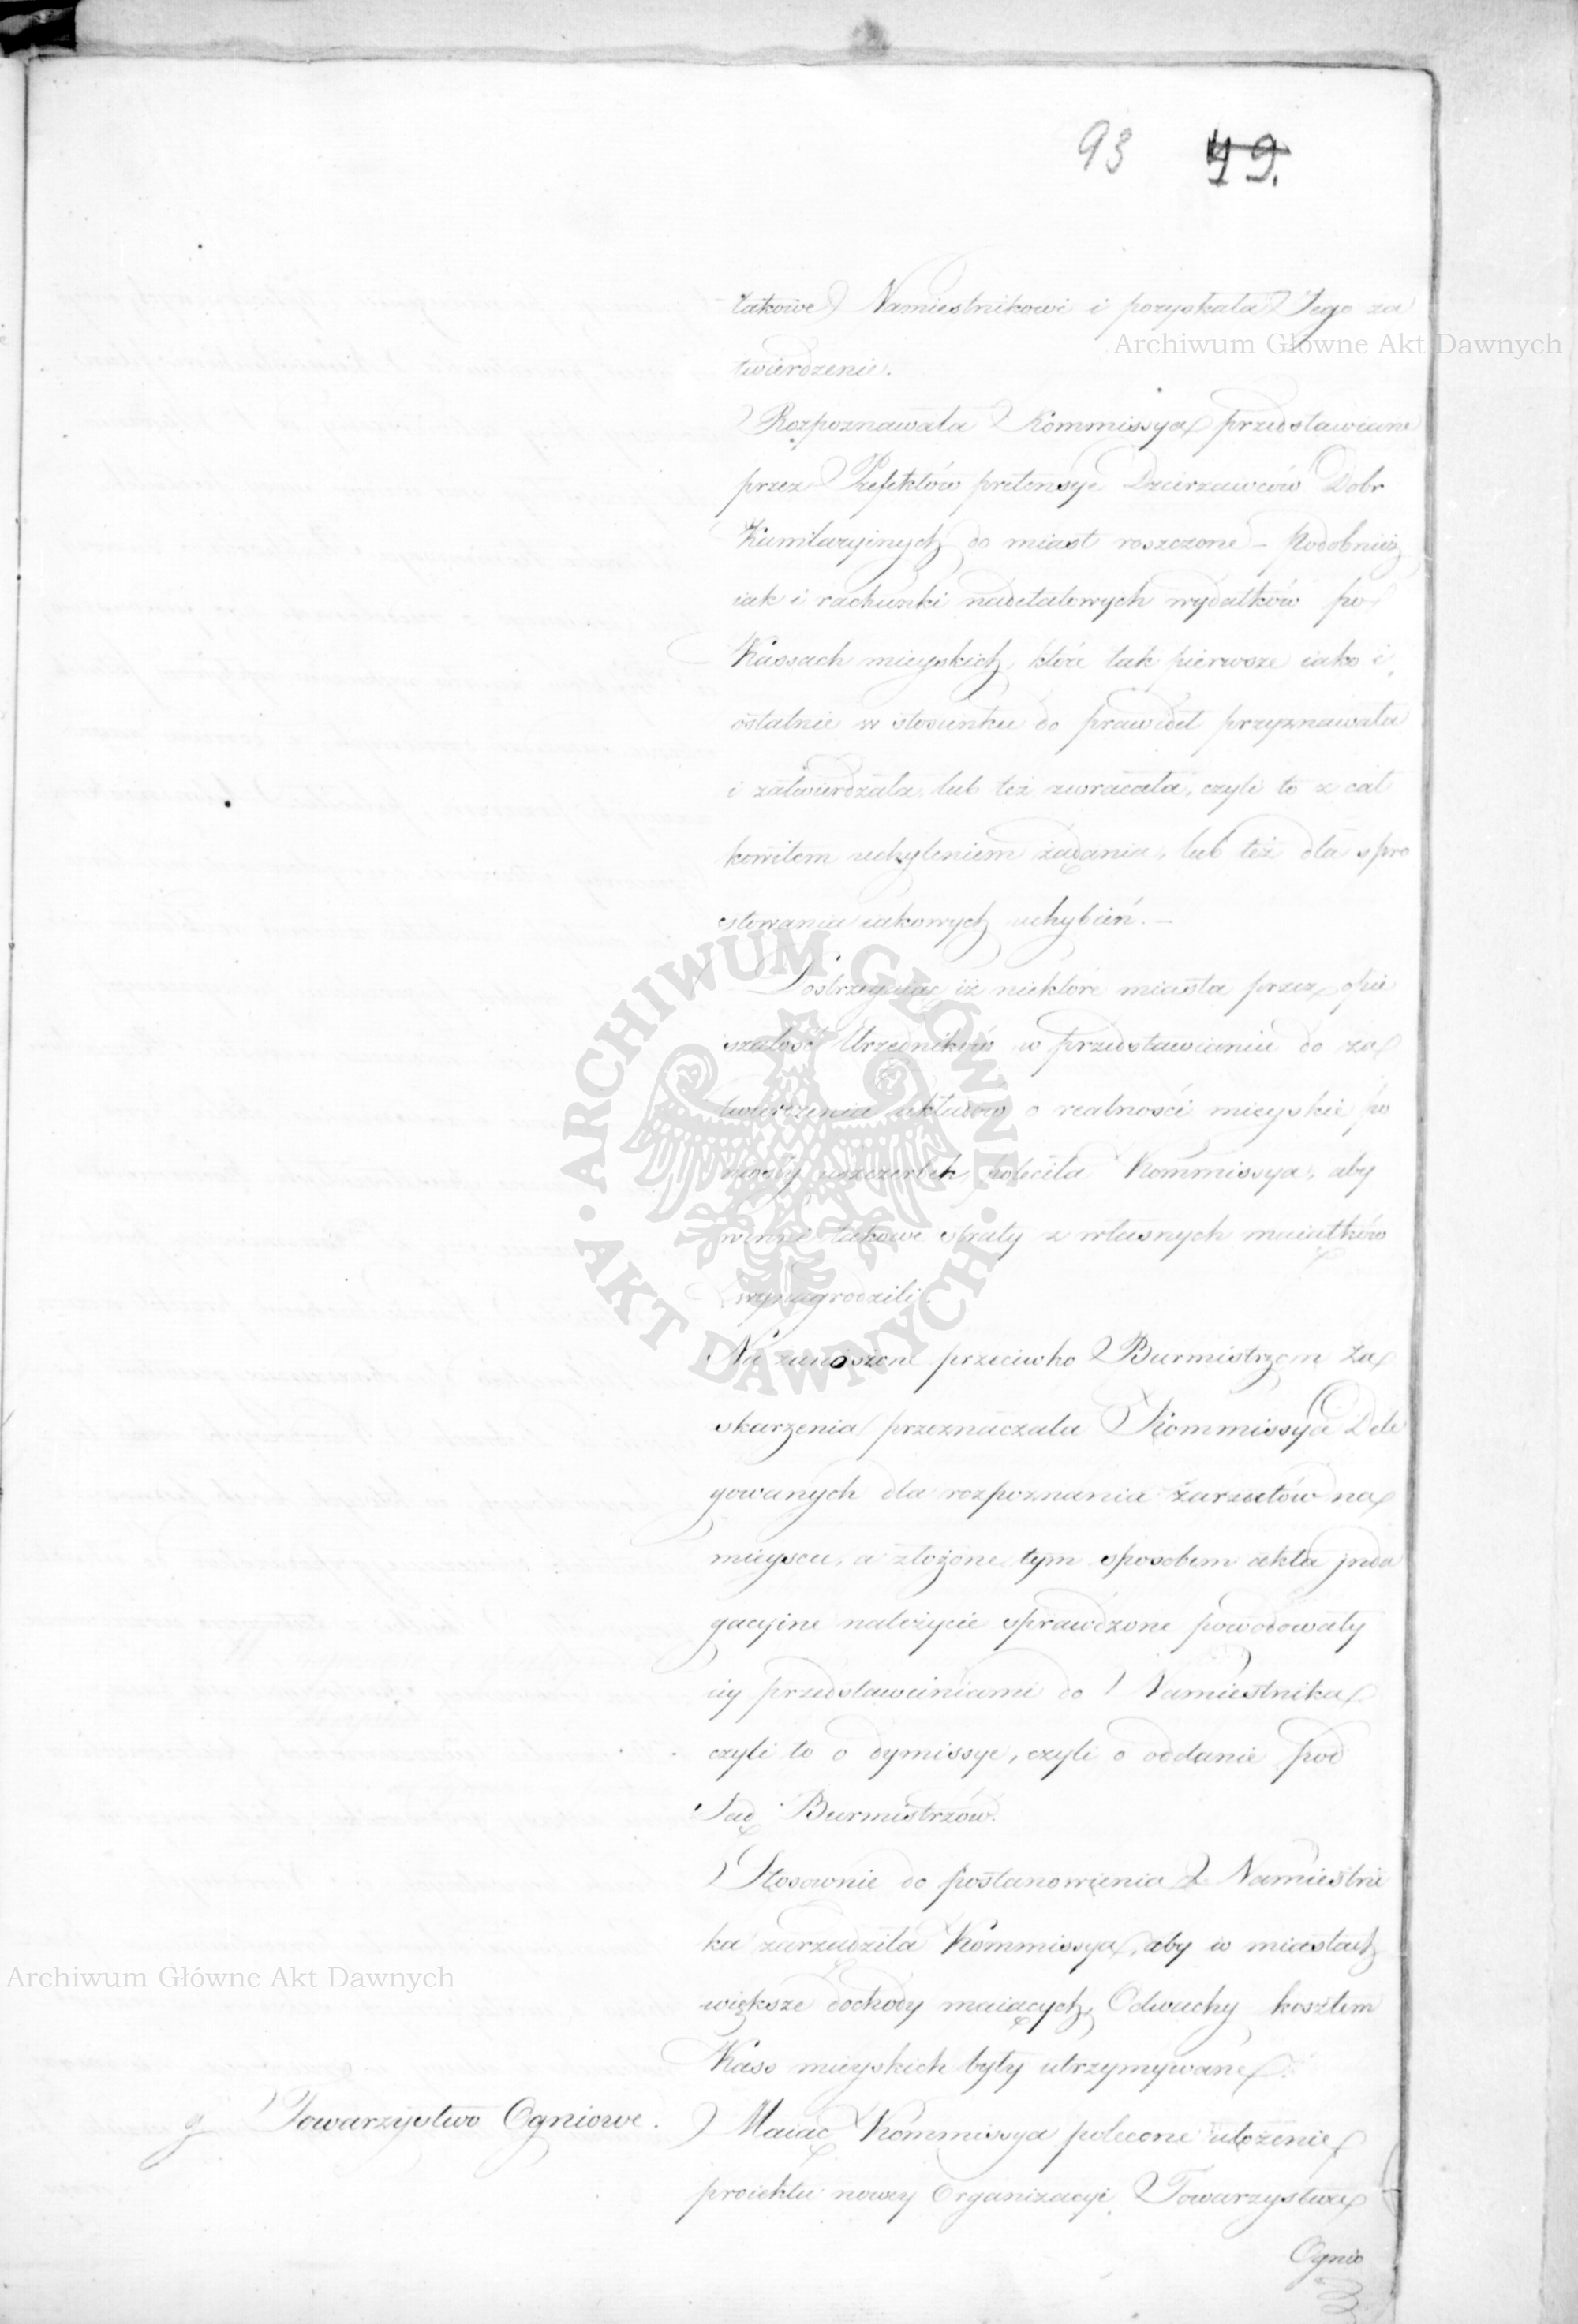 93 49.
takowe Namiestnikowi i pozyskała Jego za
twierdzenie.
Rozpoznawała Kommissya przedstawiane
przez Prefektów pretensye Dzierzawców Dobr
do miast roszczone – Podobnież
iak i rachunki nadetatowych wydatków po
Kassach mieyskich, które tak pierwsze iako i
ostatnie w stosunku do prawideł przyznawała
i zatwierdzała, lub też zwracała, czyli to z cał
kowitem uchyleniem żądania, lub też dla spro
stowania iakowych uchybień. –
Postrzegaiąc iż niektóre miasta przez opie
szałość Urzędników w przedstawianiu do za
twierdzenia układów o realności mieyskie po
niosły uszczerbek, poleciła Kommissya, aby
winni takowe straty z własnych maiątków
wynagrodzili.
Na zanoszone przeciwko Burmistrzom Za
skarzenia przeznaczała Kommissya Dele
gowanych dla rozpoznania zarzutów na
mieyscu, a złożone tym sposobem akta jnda
gacyine należycie sprawdzone powodowały
ią przedstawieniami do Namiestnika
czyli to o dymissye, czyli o oddanie pod
Sąd Burmistrzów.
Stosownie do postanowienia Namiestni
ka zarządziła Kommissya, aby w miastach
większe dochody maiących, Odwachy kosztem
Kass mieyskich były utrzymywane.
g Towarzystwo Ogniowe.
Maiąc Kommissya polecone ułożenie
proiektu nowey Organizacyi Towarzystwa
Ognio
Archiwum Główne Akt Dawnych
Archiwum Główne Akt Dawnych
ARCHIWUM GŁÓWNE • AKT DAWNYCH •